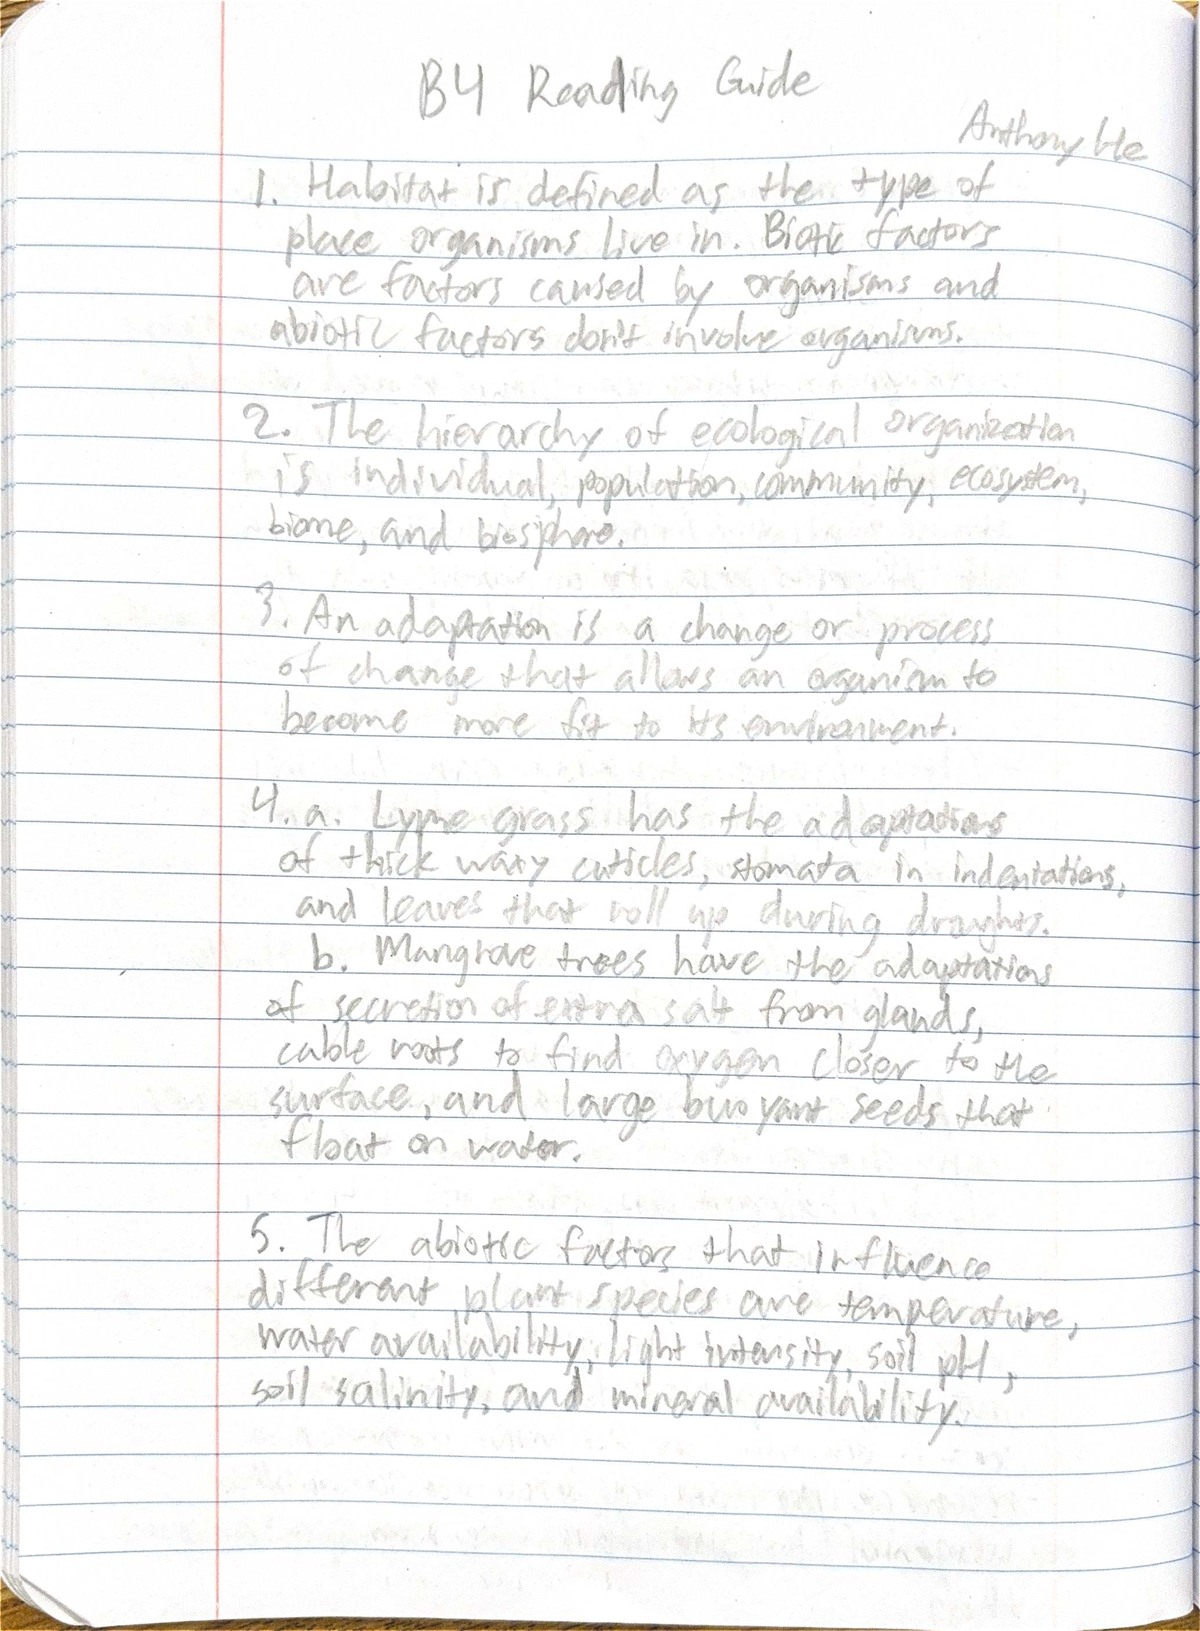 B4 Reading Guide
Anthony He
1. Habitat is defined as the type of
place organisms live in. Biotic factors
are factors caused by organisms and
abiotic factors don't involve organisms.
2. The hierarchy of ecological organization
is individual, population, community, ecosystem,
biome, and biosphere.
3. An adaptation is a change or process
of change that allows an organism to
become more fit to its environment.
4. a. Lyme grass has the adaptations
of thick waxy cuticles, stomata in indentations,
and leaves that roll up during droughts.
b. Mangrove trees have the adaptations
of secretion of extra salt from glands,
cable roots to find oxygen closer to the
surface, and large buoyant seeds that
float on water.
5. The abiotic factors that influence
different plant species are temperature,
water availability, light intensity, soil pH,
soil salinity, and mineral availability.